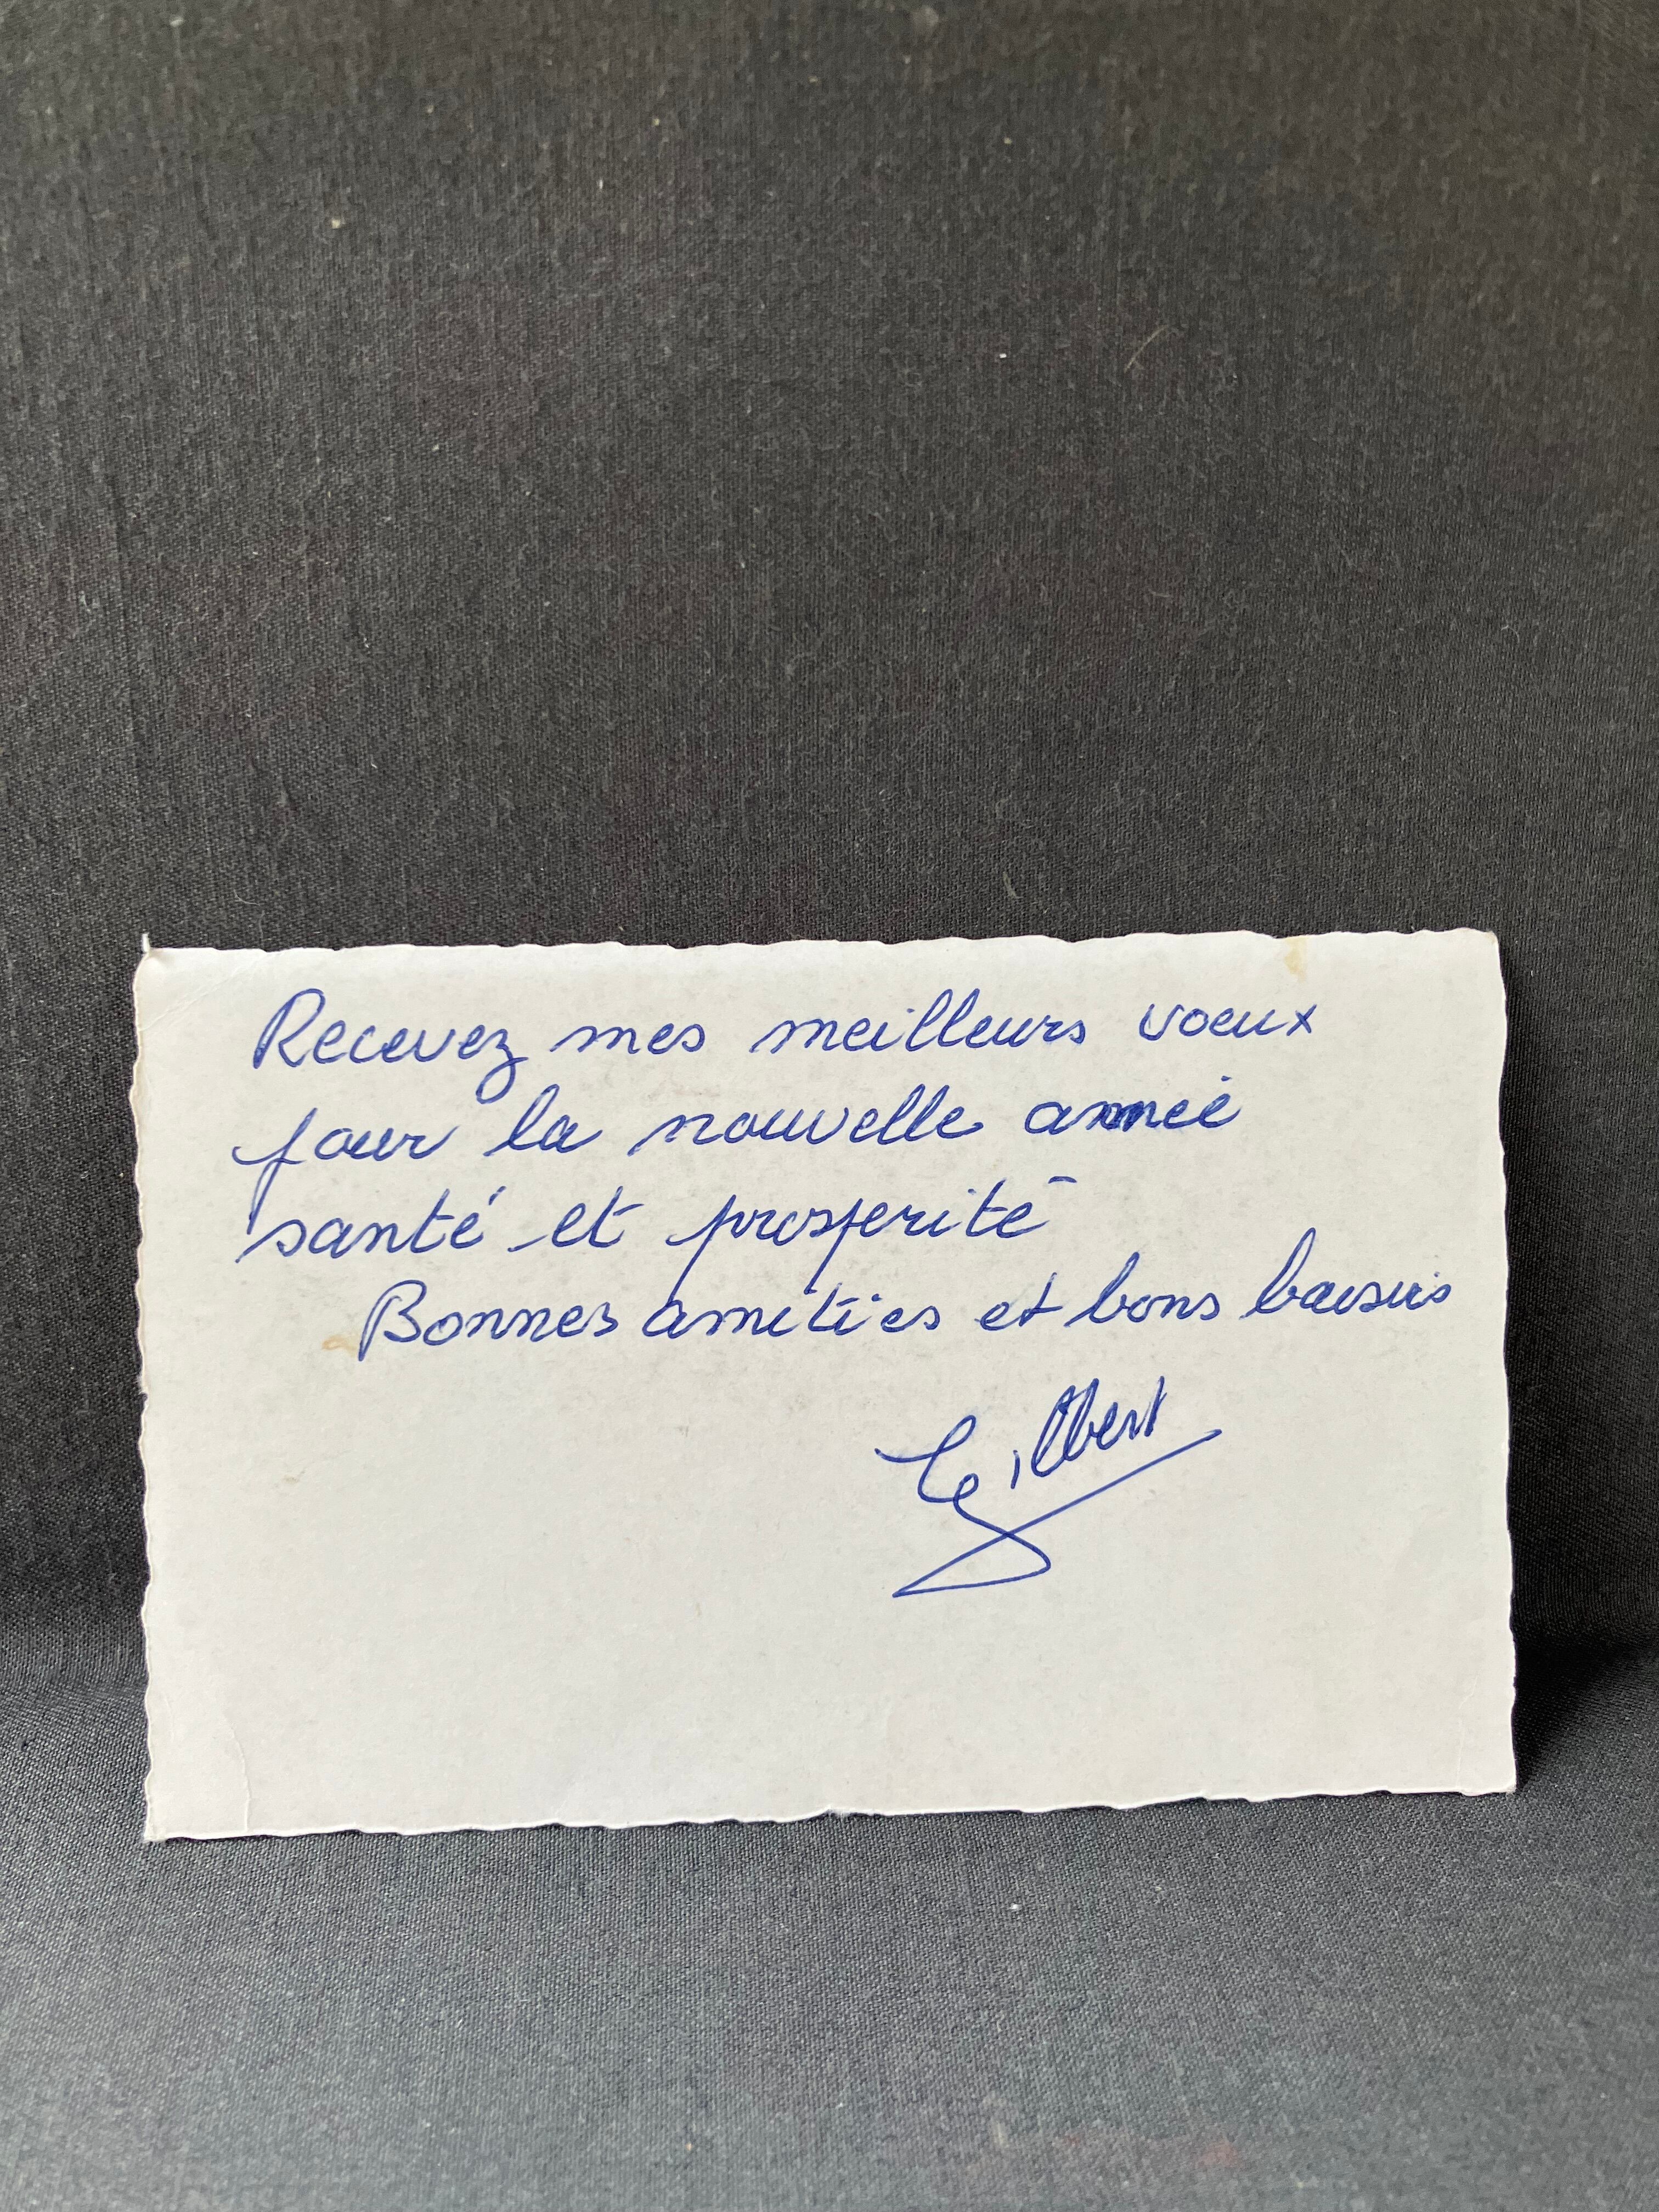 Recevez mes meilleurs voeux
pour la nouvelle année
santé et prosperité
Bonnes amitiés et bons baisers
Gilbert